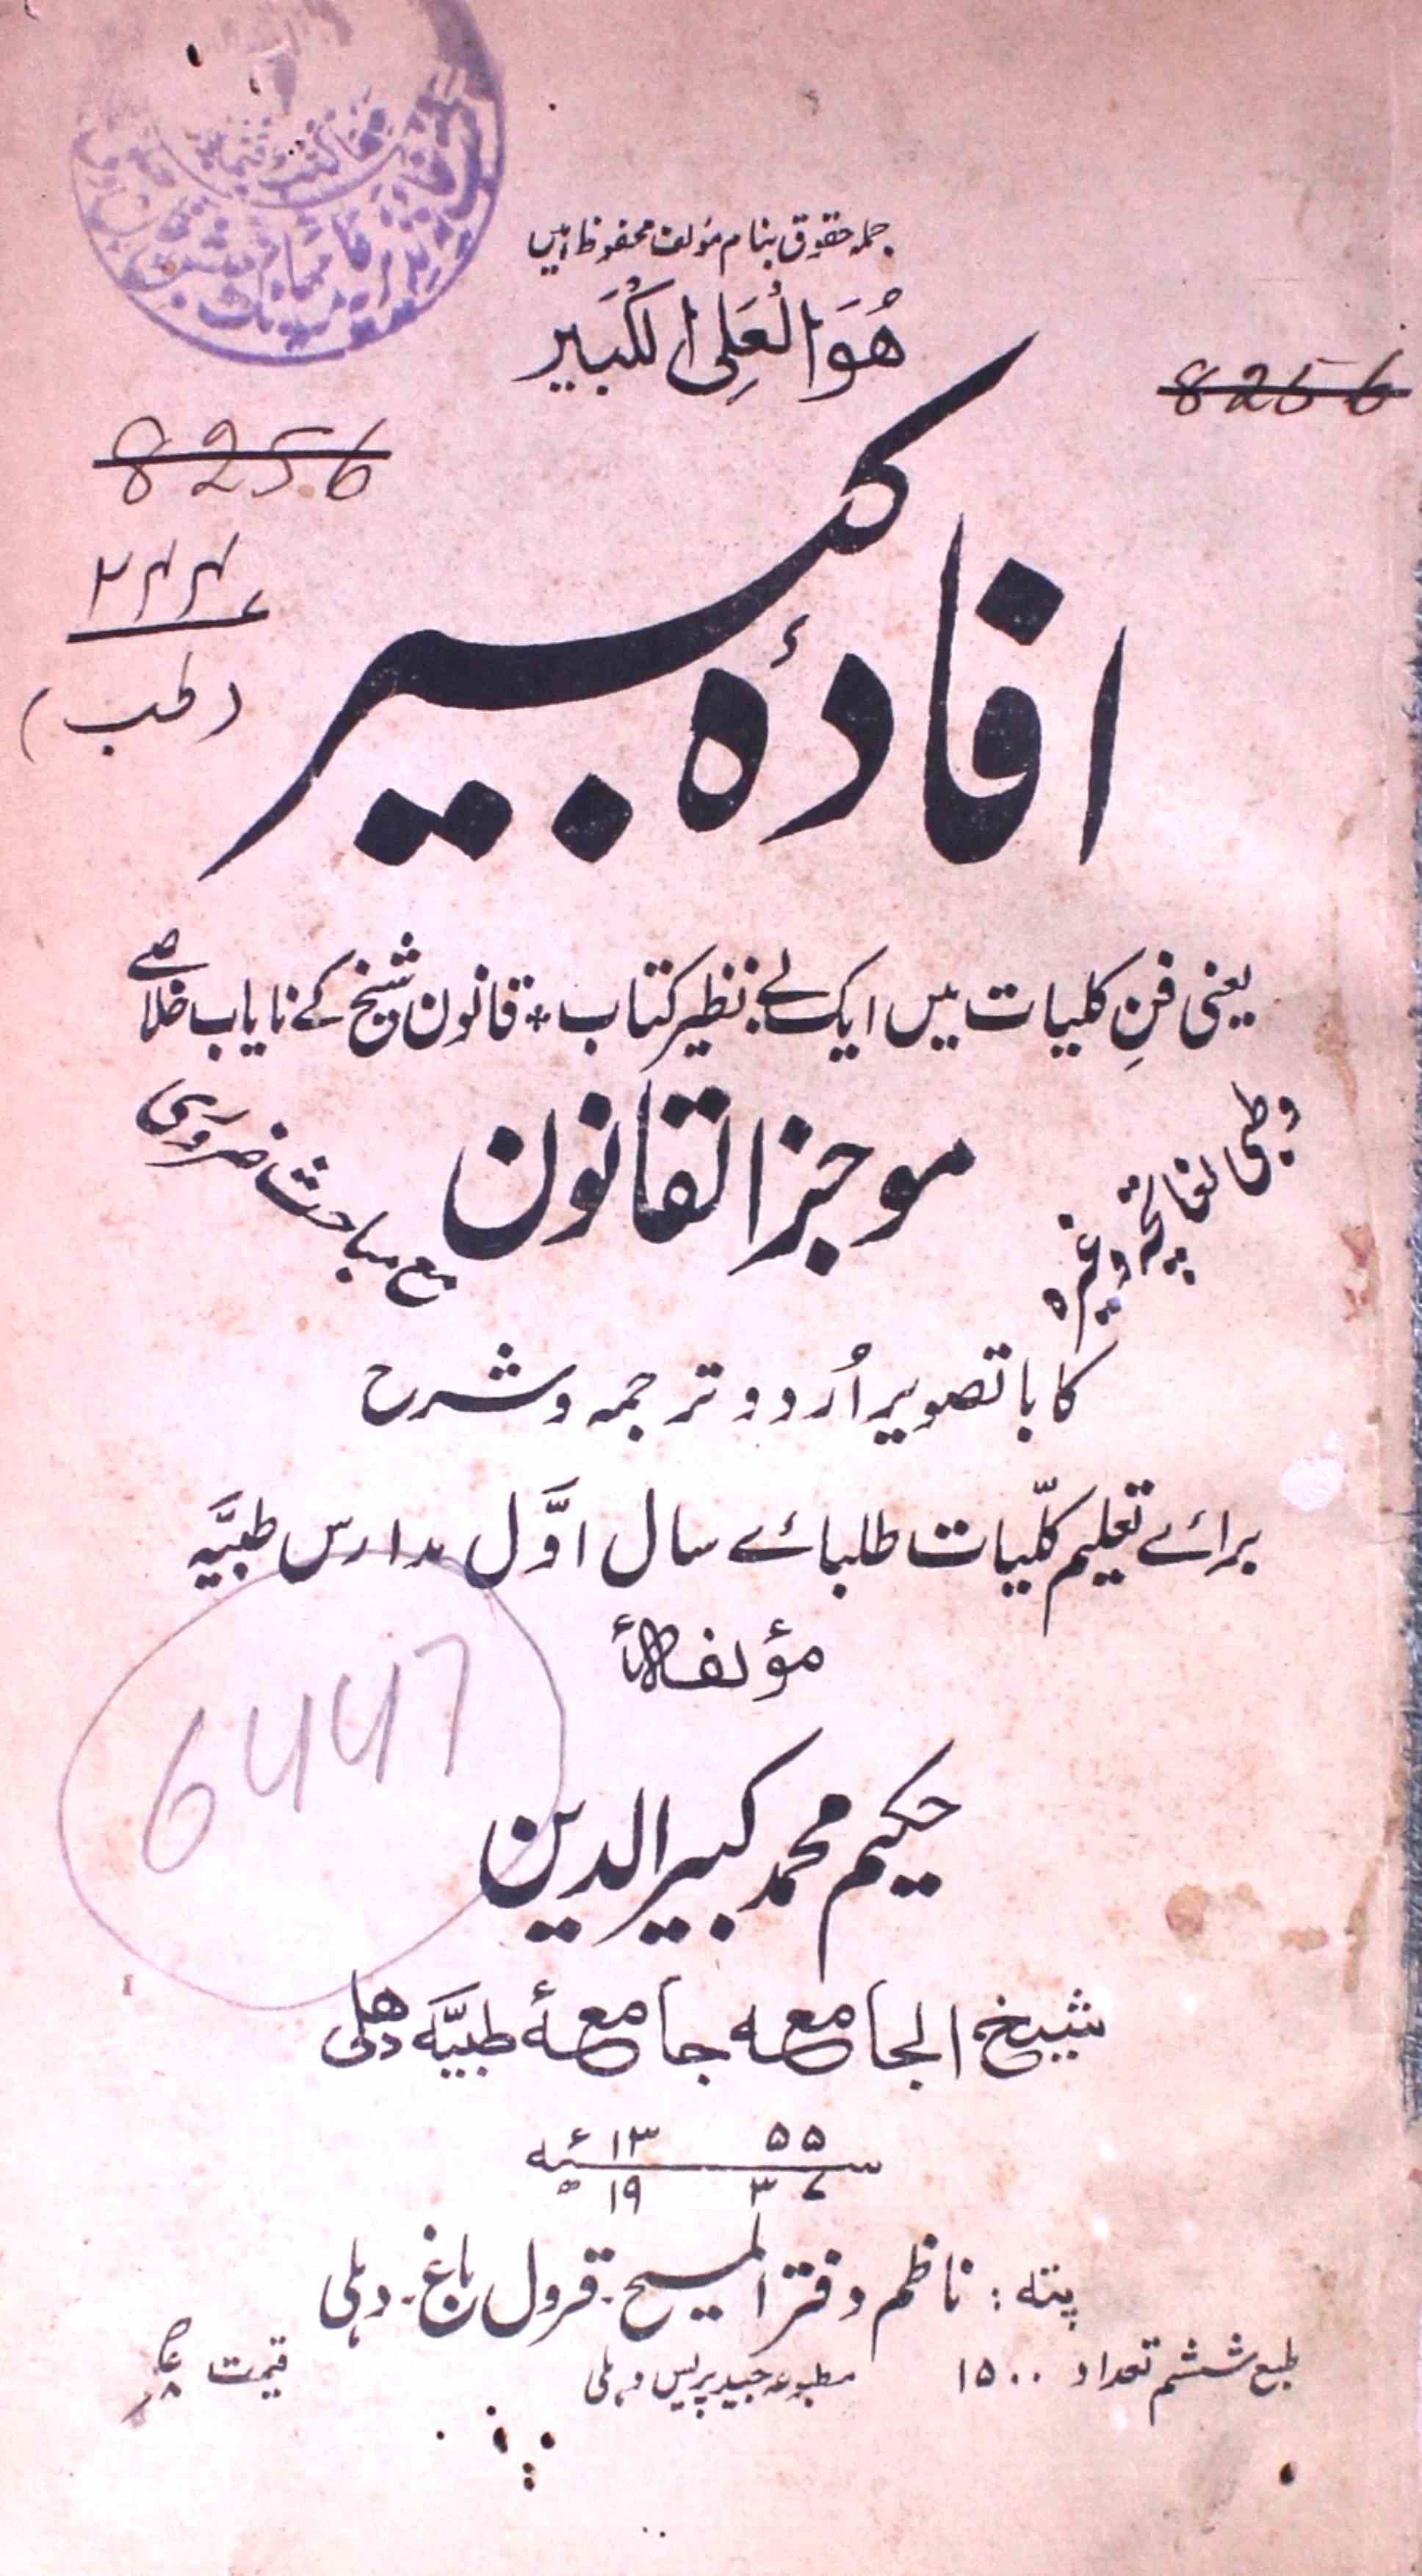 جملہ حقوق بنام مؤلف محفوظ ہیں
هُوَ العَلِی الکَبِیر
8256
8256
(طب)
افادۂ کبیر
یعنی فنِ کلیات میں ایک بے نظیر کتاب * قانون شیخ کے نایاب خلاصے
موجز القانون
مع مباحث ضروری
وطبی لغا
وغیرہ
کا باتصویر اُردو ترجمہ و شرح
برائے تعلیم کلّیات طلبائے سال اوَّل مدارس طبیَّہ
مؤلفہٗ
6447
حکیم محمد کبیر الدین
شیخ الجامعہ جامعۂ طبیَّہ دھلی
۱۳۵۵
۱۹۳۶
پتہ : ناظم دفتر المسیح۔ قرول باغ۔ دہلی
طبع ششم تعداد ۱۵۰۰ مطبوعہ جید پریس دہلی قیمت